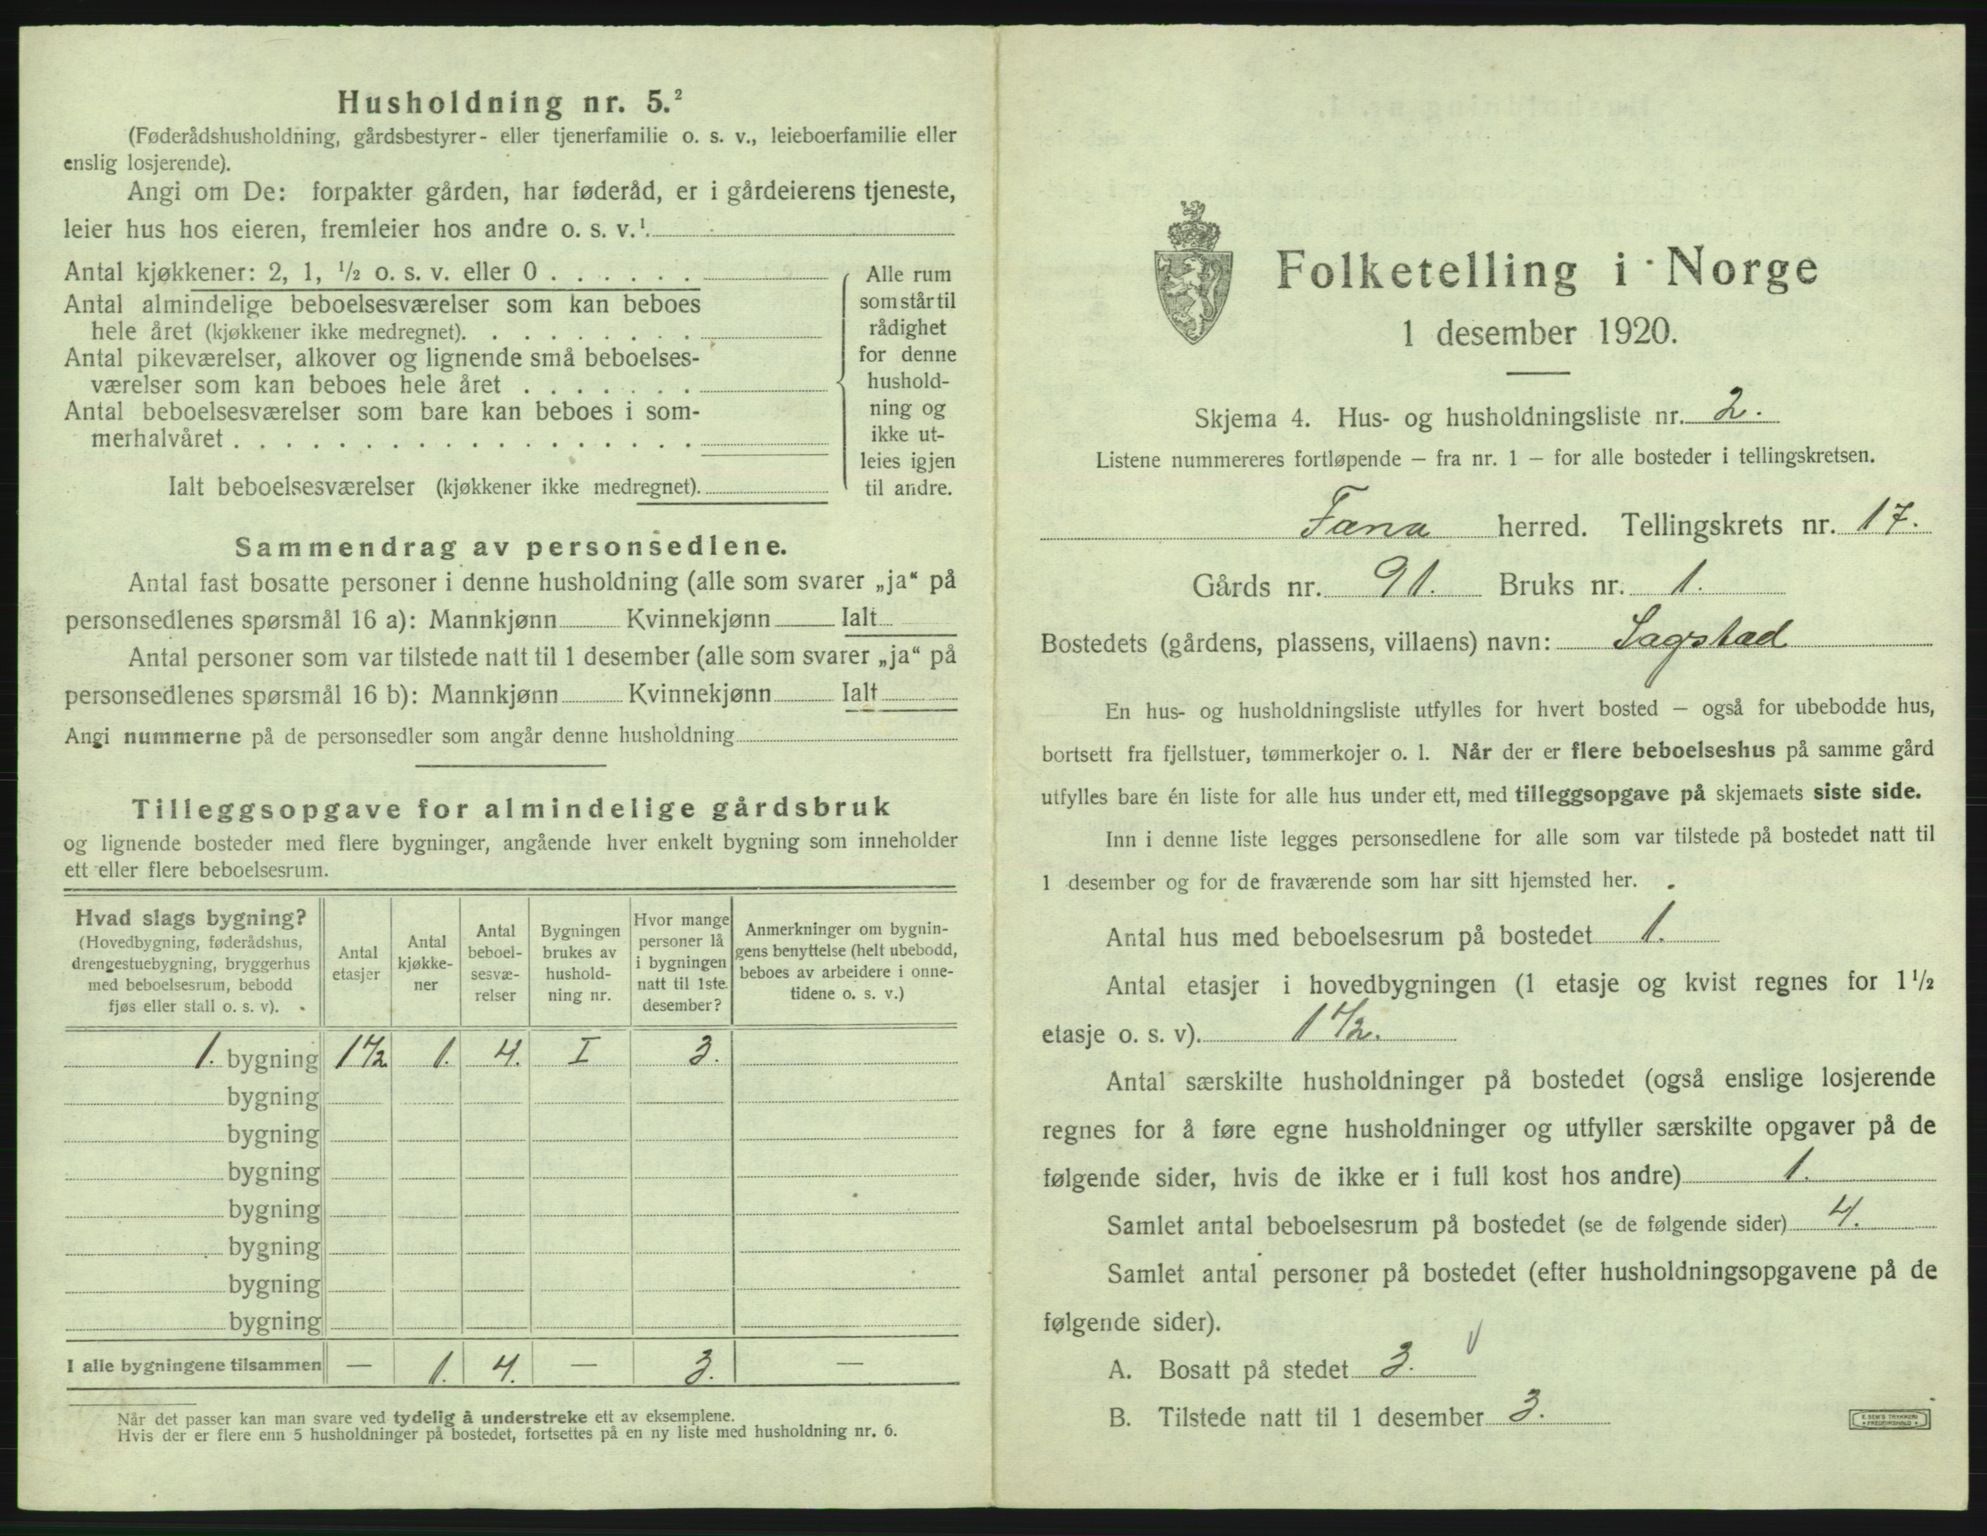 Husholdning nr. 5.²
(Føderådshusholdning, gårdsbestyrer- eller tjenerfamilie o. s. v., leieboerfamilie eller
enslig losjerende).
Angi om De: forpakter gården, har føderåd, er i gårdeierens tjeneste,
leier hus hos eieren, fremleier hos andre o. s. v.¹
Antal kjøkkener: 2, 1, ½ o. s. v. eller 0 . . . . . .
Antal almindelige beboelsesværelser som kan beboes
hele året (kjøkkener ikke medregnet). . . . . . . . .
Antal pikeværelser, alkover og lignende små beboelses-
værelser som kan beboes hele året . . . . . . .
Antal beboelsesværelser som bare kan beboes i som-
merhalvåret . . . . . . . . . . . . . . . . . .
Ialt beboelsesværelser (kjøkkener ikke medregnet).
Alle rum
som står til
rådighet
for denne
hushold-
ning og
ikke ut-
leies igjen
til andre.
Sammendrag av personsedlene.
Antal fast bosatte personer i denne husholdning (alle som svarer „ja“ på
personsedlenes spørsmål 16 a): Mannkjønn Kvinnekjønn Ialt
Antal personer som var tilstede natt til 1 desember (alle som svarer „ja“ på
personsedlenes spørsmål 16 b): Mannkjønn Kvinnekjønn Ialt
Angi nummerne på de personsedler som angår denne husholdning
Tilleggsopgave for almindelige gårdsbruk
og lignende bosteder med flere bygninger, angående hver enkelt bygning som inneholder
ett eller flere beboelsesrum.
Hvad slags bygning?
(Hovedbygning, føderådshus,
drengestuebygning, bryggerhus
med beboelsesrum, bebodd
fjøs eller stall o. s. v).
Antal
etasjer
Antal
kjøkke-
ner
Antal
beboel-
sesvæ-
relser
Bygningen
brukes av
hushold-
ning nr.
Hvor mange
personer lå
i bygningen
natt til 1ste
desember?
Anmerkninger om bygnin-
gens benyttelse (helt ubebodd,
beboes av arbeidere i onne-
tidene o. s. v.)
1. bygning 1 ½ 1. 4. I 3.
bygning
bygning
bygning
bygning
bygning
bygning
bygning
I alle bygningene tilsammen — 1. 4. — 3. —
Når det passer kan man svare ved tydelig å understreke ett av eksemplene.
Hvis der er flere enn 5 husholdninger på bostedet, fortsettes på en ny liste med husholdning nr. 6.
Folketelling i Norge
1 desember 1920.
Skjema 4. Hus- og husholdningsliste nr. 2.
Listene nummereres fortløpende — fra nr. 1 — for alle bosteder i tellingskretsen.
Fana herred. Tellingskrets nr. 17.
Gårds nr. 91. Bruks nr. 1.
Bostedets (gårdens, plassens, villaens) navn: Sagstad
En hus- og husholdningsliste utfylles for hvert bosted — også for ubebodde hus,
bortsett fra fjellstuer, tømmerkojer o. l. Når der er flere beboelseshus på samme gård
utfylles bare én liste for alle hus under ett, med tilleggsopgave på skjemaets siste side.
Inn i denne liste legges personsedlene for alle som var tilstede på bostedet natt til
1 desember og for de fraværende som har sitt hjemsted her.
Antal hus med beboelsesrum på bostedet 1.
Antal etasjer i hovedbygningen (1 etasje og kvist regnes for 1½
etasje o. s. v). 1 ½.
Antal særskilte husholdninger på bostedet (også enslige losjerende
regnes for å føre egne husholdninger og utfyller særskilte opgaver på de
følgende sider, hvis de ikke er i full kost hos andre) 1.
Samlet antal beboelsesrum på bostedet (se de følgende sider) 4.
Samlet antal personer på bostedet (efter husholdningsopgavene på de
følgende sider).
A. Bosatt på stedet 3.
B. Tilstede natt til 1 desember 3.
E. SEM'S TRYKKERI
FREDRIKSHALD